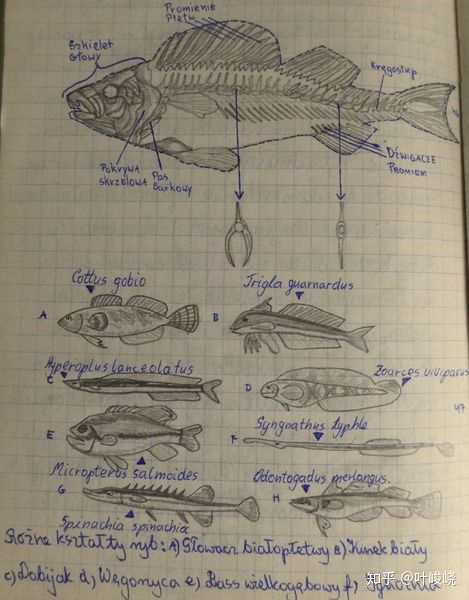 Promienie
płetw
Szkielet
Głowy
Kręgosłup
Pokrywa
skrzelowa
Pas
barkowy
Dźwigacze
Promieni
Cottus gobio
Trigla guarnardus
A
B
Hyperoplus lanceolatus
Zoarces viviparus
C
D
47
E
Syngnathus typhle
F
Micropterus salmoides
Odontogadus merlangus
G
H
Spinachia spinachia
Różne kształty ryb: A) Głowacz białopłetwy B) Kurek biały
c) Dobijak d) Węgorzyca e) Bass wielkogębowy f) Igliczna
知乎 @叶峻峣